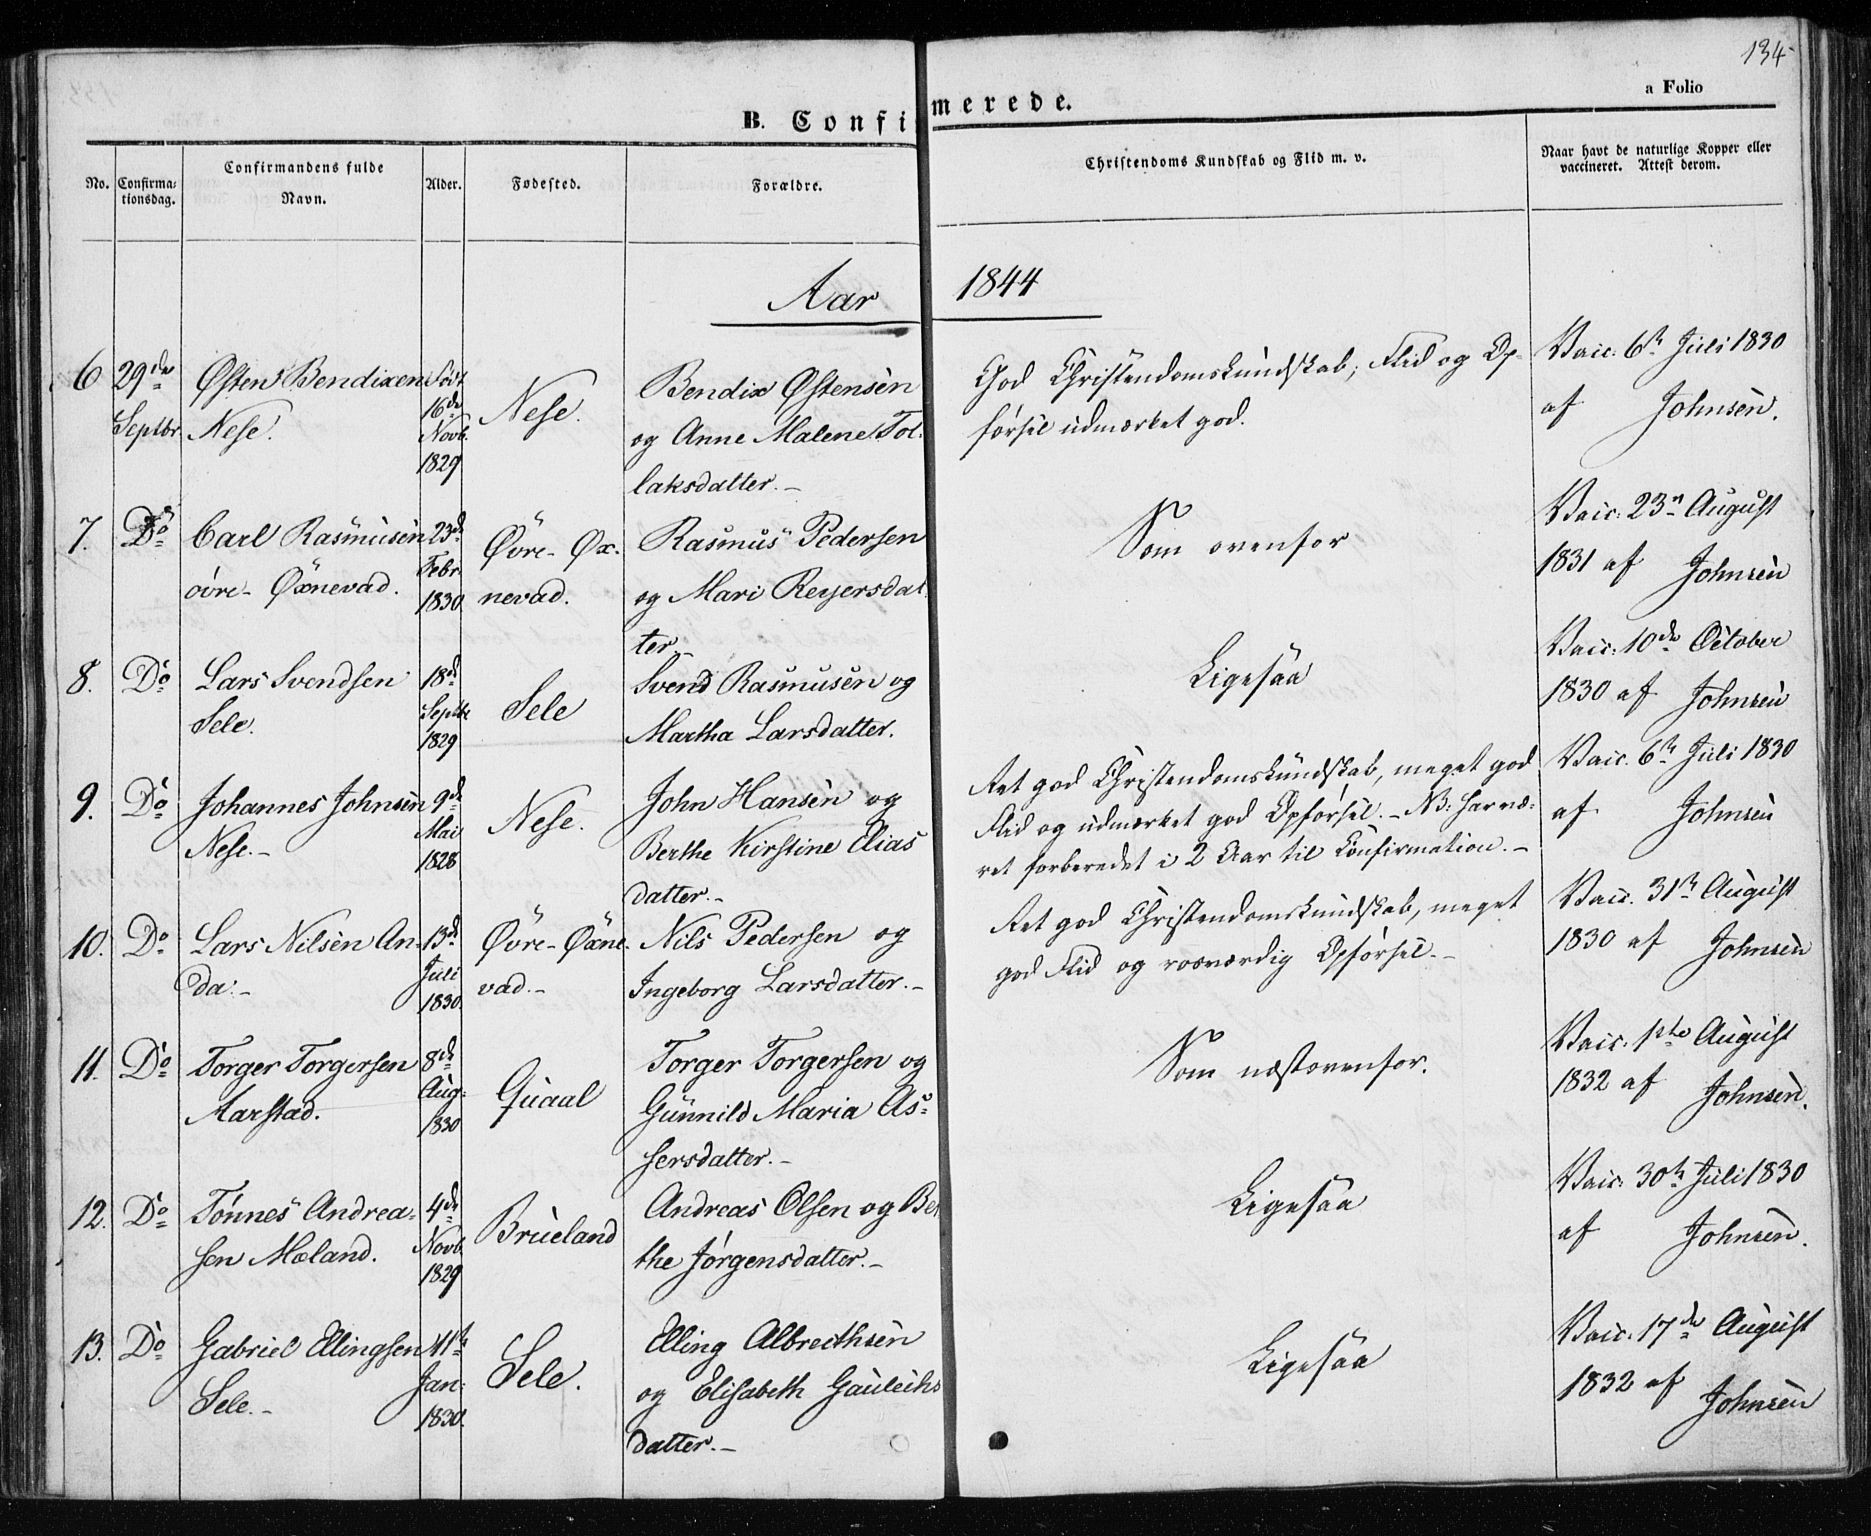 134
a Folio
B. Confirmerede.
No.
Confirma-
tionsdag.
Confirmandens fulde
Navn.
Alder.
Fødested.
Forældre.
Christendoms Kundskab og Flid m. v.
Naar havt de naturlige Kopper eller
vaccineret. Attest derom.
Aar 1844
6 29de Septbr
Østen Bendixen
Nese.
Født
16de
Novb.
1829
Nese.
Bendix Østensen
og Anne Malene Tol-
laksdatter.-
God Christendomskundskab, Flid og Op-
førsel udmærket god.
Vacc. 6te Juli 1830
af Johnsen.
7. Do
Carl Rasmusen
øvre- Øxnevad.
23de
Febr.
1830
Øvre- Øx-
nevad.
Rasmus Pedersen
og Mari Reyersdat-
ter.-
Som ovenfor
Vacc. 23de August
1831 af Johnsen
8. Do
Lars Svendsen
Sele.
18de
Septbr
1829
Sele
Svend Rasmusen og
Martha Larsdatter.
Ligesaa
Vacc. 10de October
1830 af Johnsen
9. Do
Johannes Johnsen
Nese.-
9de
Mai
1828
Nese.
John Hansen og
Berthe Kirstine Elias
datter.-
Ret god Christendomskundskab, meget god
Flid og udmærket god Opførsel.- NB: har væ-
ret forberedet i 2 Aar til Confirmation.-
Vacc. 6te Juli 1830
af Johnsen
10. Do
Lars Nilsen An-
da.-
13de
Juli
1830
Øvre- Øxne-
vad.-
Nils Pedersen og
Ingeborg Larsdatter.-
Ret god Christendomskundskab, meget
god Flid og rosværdig Opførsel.-
Vacc. 31te August
1830 af Johnsen
11. Do
Torger Torgersen
Aarstad.
8de
Aug.
1830
Quaal
Torger Torgersen og
Gunnild Maria As-
sersdatter.-
Som næstovenfor.
Vacc. 1ste August
1832 af Johnsen.
12. Do
Tønnes Andrea-
sen Mæland.
4de
Novb.
1829
Brueland
Andreas Olsen og Ber
the Jørgensdatter.-
Ligesaa
Vacc. 30te Juli 1830
af Johnsen.
13. Do
Gabriel Ellingsen
Sele.-
11te
Jan.
1830.
Sele.
Elling Albrecthsen
og Elisabeth Gauleiks
datter.-
Ligesaa
Vacc. 17de August
1832 af
Johnsen